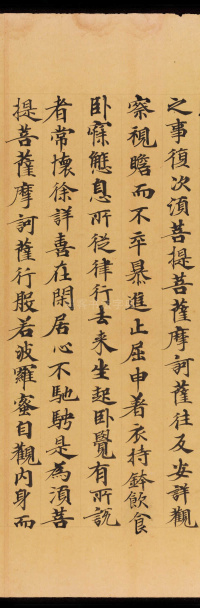 之事復次須菩提菩薩摩訶薩往及安詳觀
察視瞻而不卒暴進止屈申著衣持鉢飲食
卧寐態息所從律行去来坐起卧覺有所說
者常懷徐詳喜在閑居心不馳騁是為須菩
提菩薩摩訶薩行般若波羅蜜自觀內身而